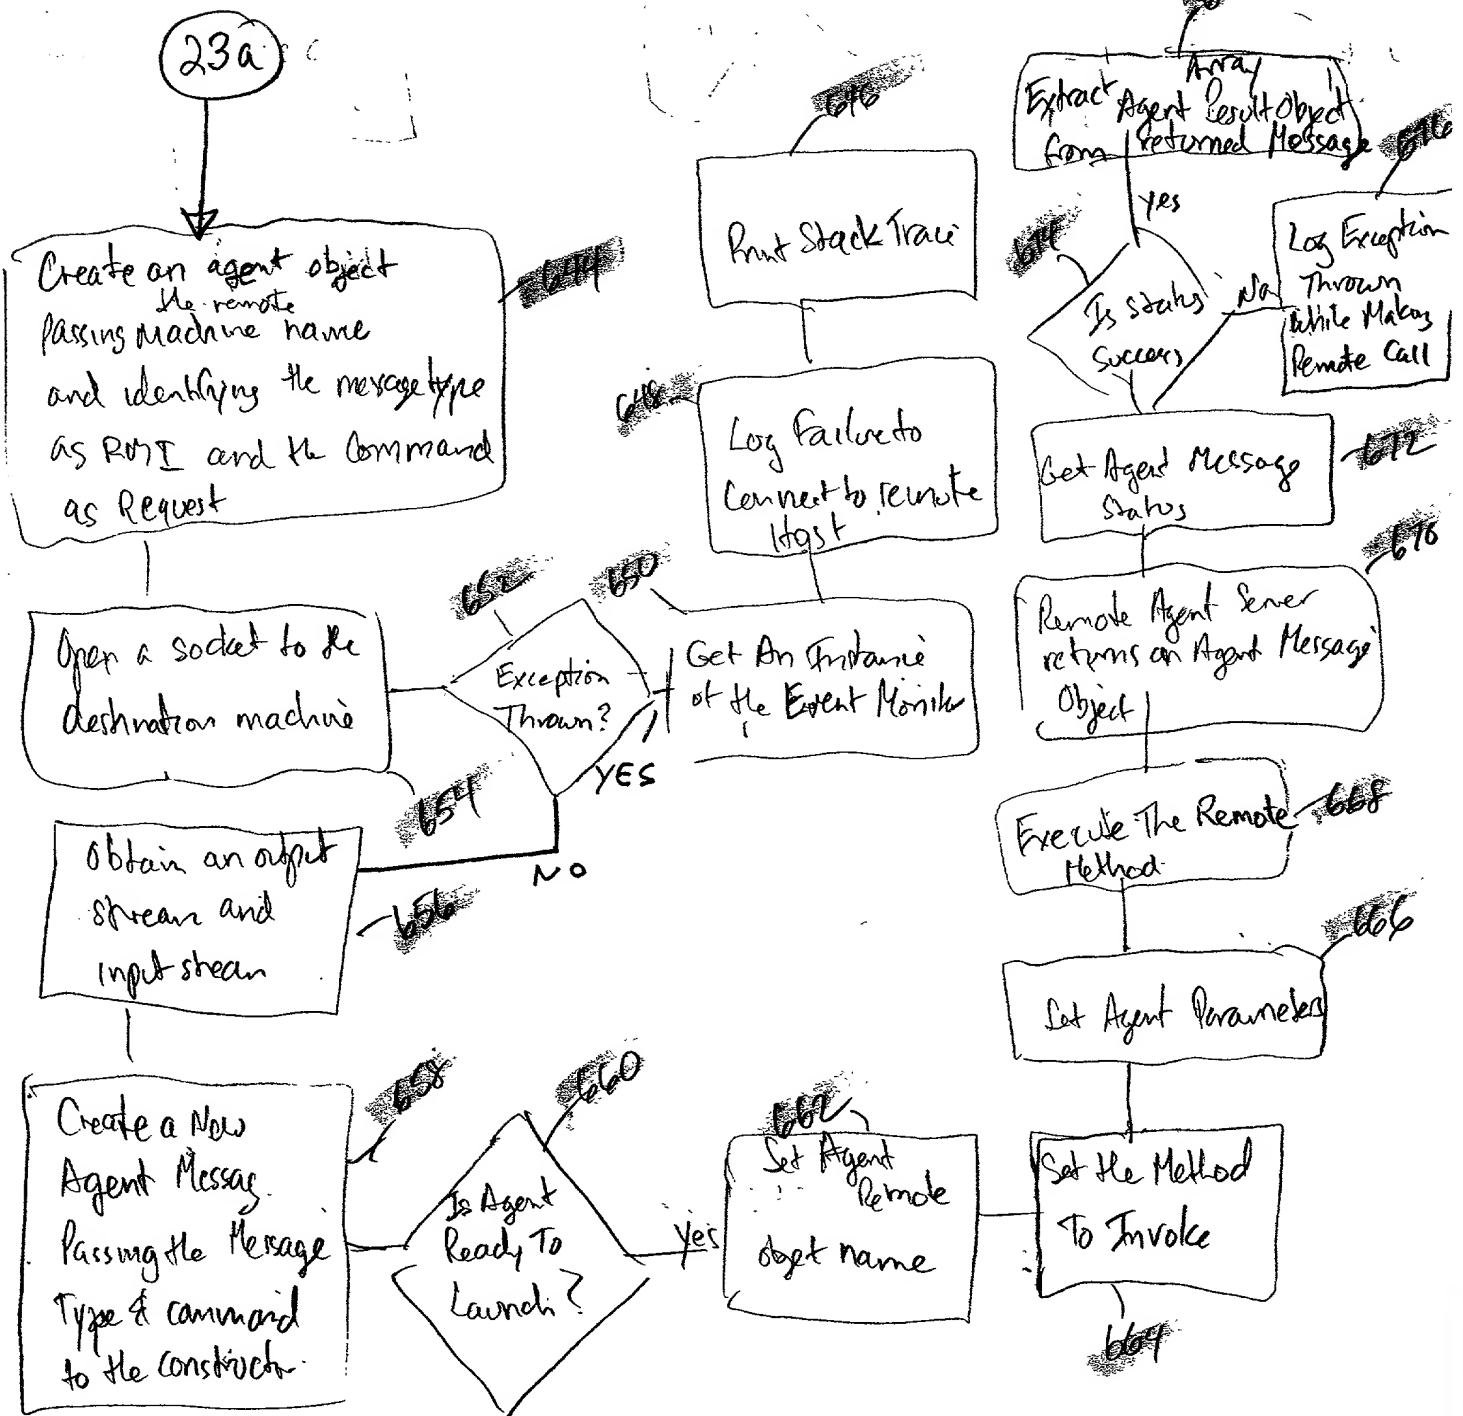 23a
Create an agent object
the remote
Passing Machine name
and identifying the message type
as RMI and the Command
as Request
644
Open a socket to the
destination machine
654
Obtain an output
stream and
input stream
656
Create a New
Agent Messag
Passing the Message
Type & command
to the constructor.
658
Is Agent
Ready To
Launch?
660
Yes
662
Set Agent
Remote
objet name
Set the Method
To Invoke
664
Set Agent Parameters
666
Execute The Remote
Method
668
Remote Agent Server
returns an Agent Message
Object
670
Get Agent Message
Status
672
Is Status
Success
674
yes
No
Log Exception
Thrown
While Making
Remote Call
676
Array
Extract Agent Result Object
from returned Message
646
Print Stack Trace
648
Log Failure to
Connect to remote
Host
650
Get An Instance
of the Event Monitor
652
Exception
Thrown?
YES
NO